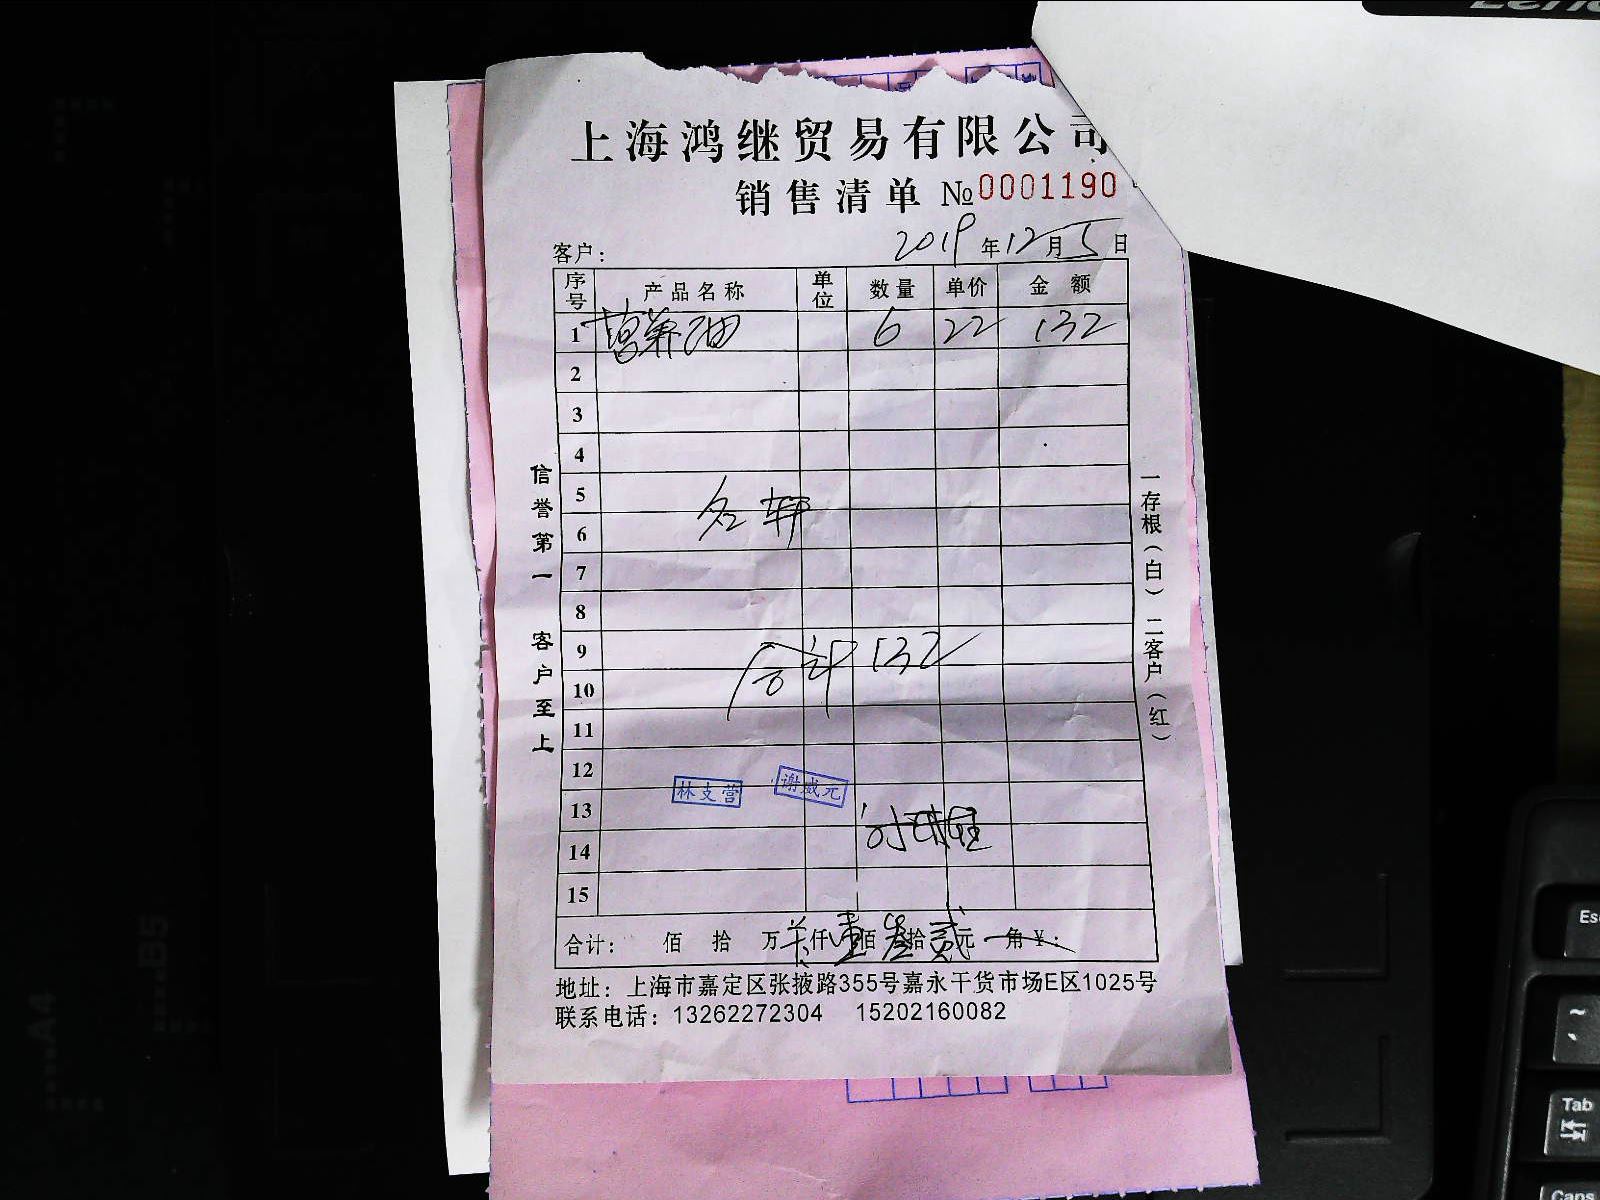 上海鸿继贸易有限公司
销售清单 №0001190
客户：
2019年12月5日
序号 产品名称 单位 数量 单价 金额
1 6 22 132
2
3
4
5
6
7
8
9
10
11
12
13
14
15
合计 132
林支营 谢威元
合计： 佰 拾 万 仟 壹佰 叁拾 贰元 角 ¥：
地址：上海市嘉定区张掖路355号嘉永干货市场E区1025号
联系电话：13262272304 15202160082
信誉第一 客户至上
一存根（白） 二客户（红）
Esc
Tab
Caps